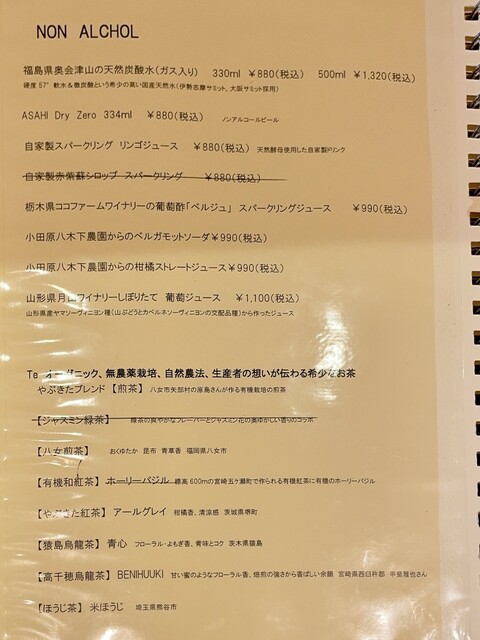 NON ALCHOL
福島県奥会津山の天然炭酸水(ガス入り) 330ml ¥880(税込) 500ml ¥1,320(税込)
硬度57°軟水&微炭酸という希少の高い国産天然水(伊勢志摩サミット、大阪サミット採用)
ASAHI Dry Zero 334ml ¥880(税込) ノンアルコールビール
自家製スパークリング リンゴジュース ¥880(税込) 天然酵母使用した自家製ドリンク
自家製赤紫蘇シロップ スパークリング ¥880(税込)
栃木県ココファームワイナリーの葡萄酢「ベルジュ」 スパークリングジュース ¥990(税込)
小田原八木下農園からのベルガモットソーダ¥990(税込)
小田原八木下農園からの柑橘ストレートジュース¥990(税込)
山形県月山ワイナリーしぼりたて 葡萄ジュース ¥1,100(税込)
山形県産ヤマソーヴィニヨン種(山ぶどうとカベルネソーヴィニヨンの交配品種)から作ったジュース
Te オーガニック、無農薬栽培、自然農法、生産者の想いが伝わる希少なお茶
やぶきたブレンド【煎茶】 八女市矢部村の原島さんが作る有機栽培の煎茶
【ジャスミン緑茶】 緑茶の爽やかなフレーバーとジャスミン花の奥ゆかしい香りのコラボ
【八女煎茶】 おくゆたか 昆布 青草香 福岡県八女市
【有機和紅茶】 ホーリーバジル 標高600mの宮崎五ヶ瀬町で作られる有機紅茶に有機のホーリーバジル
【やぶきた紅茶】 アールグレイ 柑橘香、清涼感 茨城県堺町
【猿島烏龍茶】 青心 フローラル・よもぎ香、青味とコク 茨木県猿島
【高千穂烏龍茶】 BENIHUUKI 甘い蜜のようなフローラル香、焙煎の強さから香ばしい余韻 宮崎県西臼杵郡 甲斐雅也さん
【ほうじ茶】 米ほうじ 埼玉県熊谷市